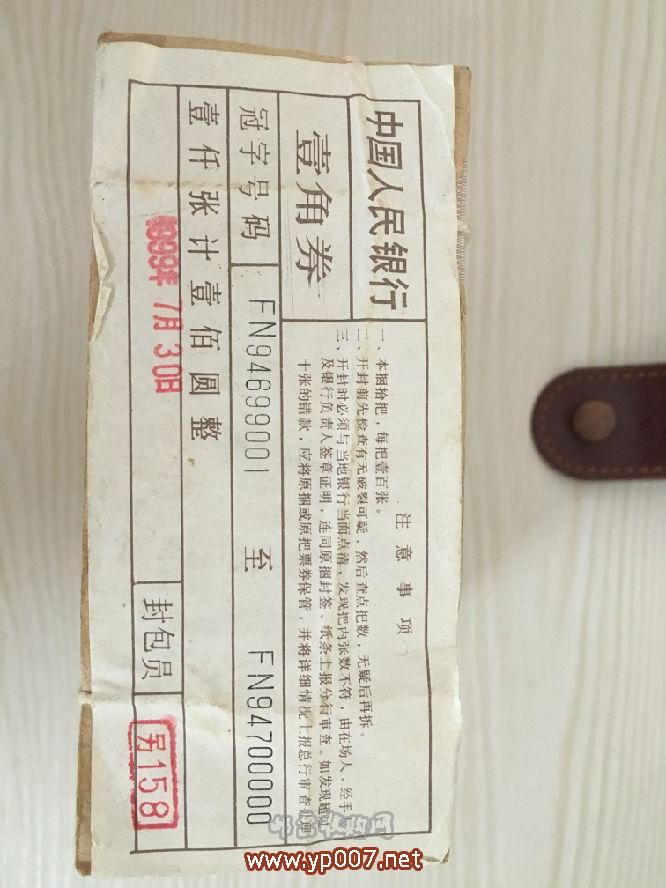 中国人民银行
壹角券
冠字号码 FN94699001 至 FN94700000
壹仟张计壹佰圆整
1999年 7月30日
封包员 另158
注意事项
一、本捆拾把，每把壹百张。
二、开封前先检查有无破裂可疑，然后查点把数，无疑后再拆。
三、开封时必须与当地银行当面点清，发现把内张数不符，由在场人、经手
及银行负责人签章证明，连同原捆封签、纸条上报分行审查。如发现超过
十张的错款，应将原捆或原把票券保管，并将详细情况上报总行审查处理
www.yp007.net